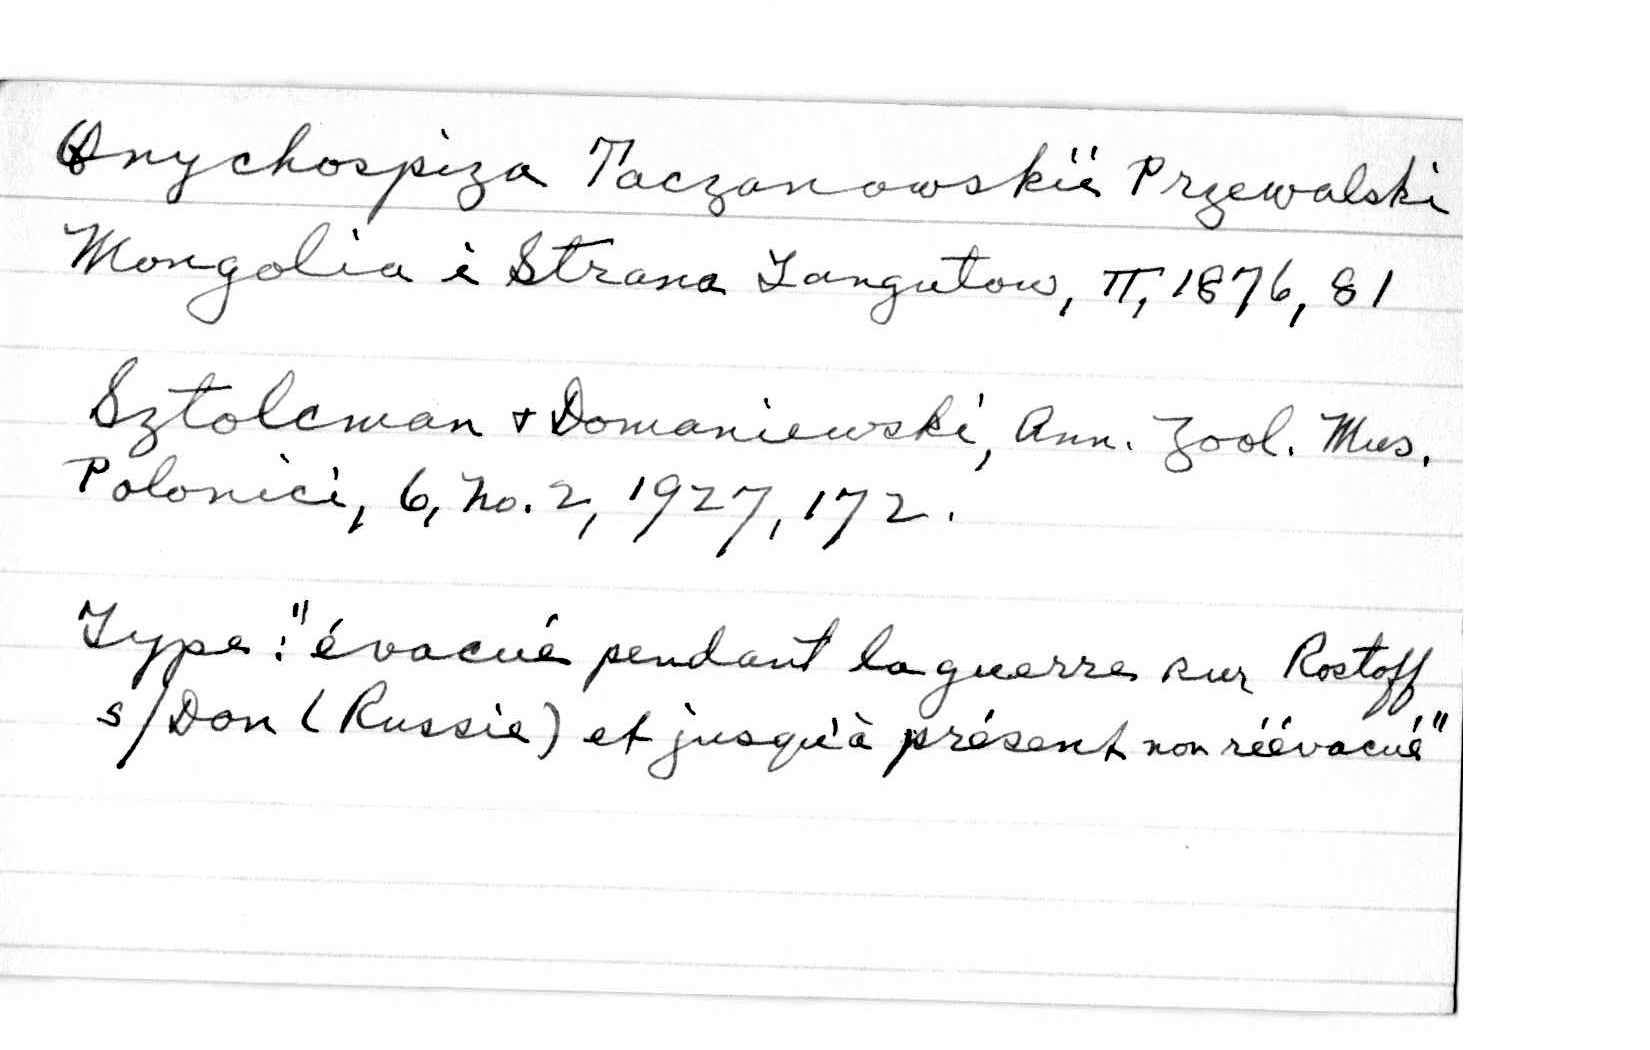 Onychospiza Taczanowskii Przewalski
Mongolia i Strana Tangutow, II, 1876, 81
Sztolcman + Domaniewski, Ann. Zool. Mus.
Polonici, 6, No. 2, 1927, 172.
Type: "évacué pendant la guerre sur Rostoff
s/Don (Russie) et jusqu'à présent non réévacué"